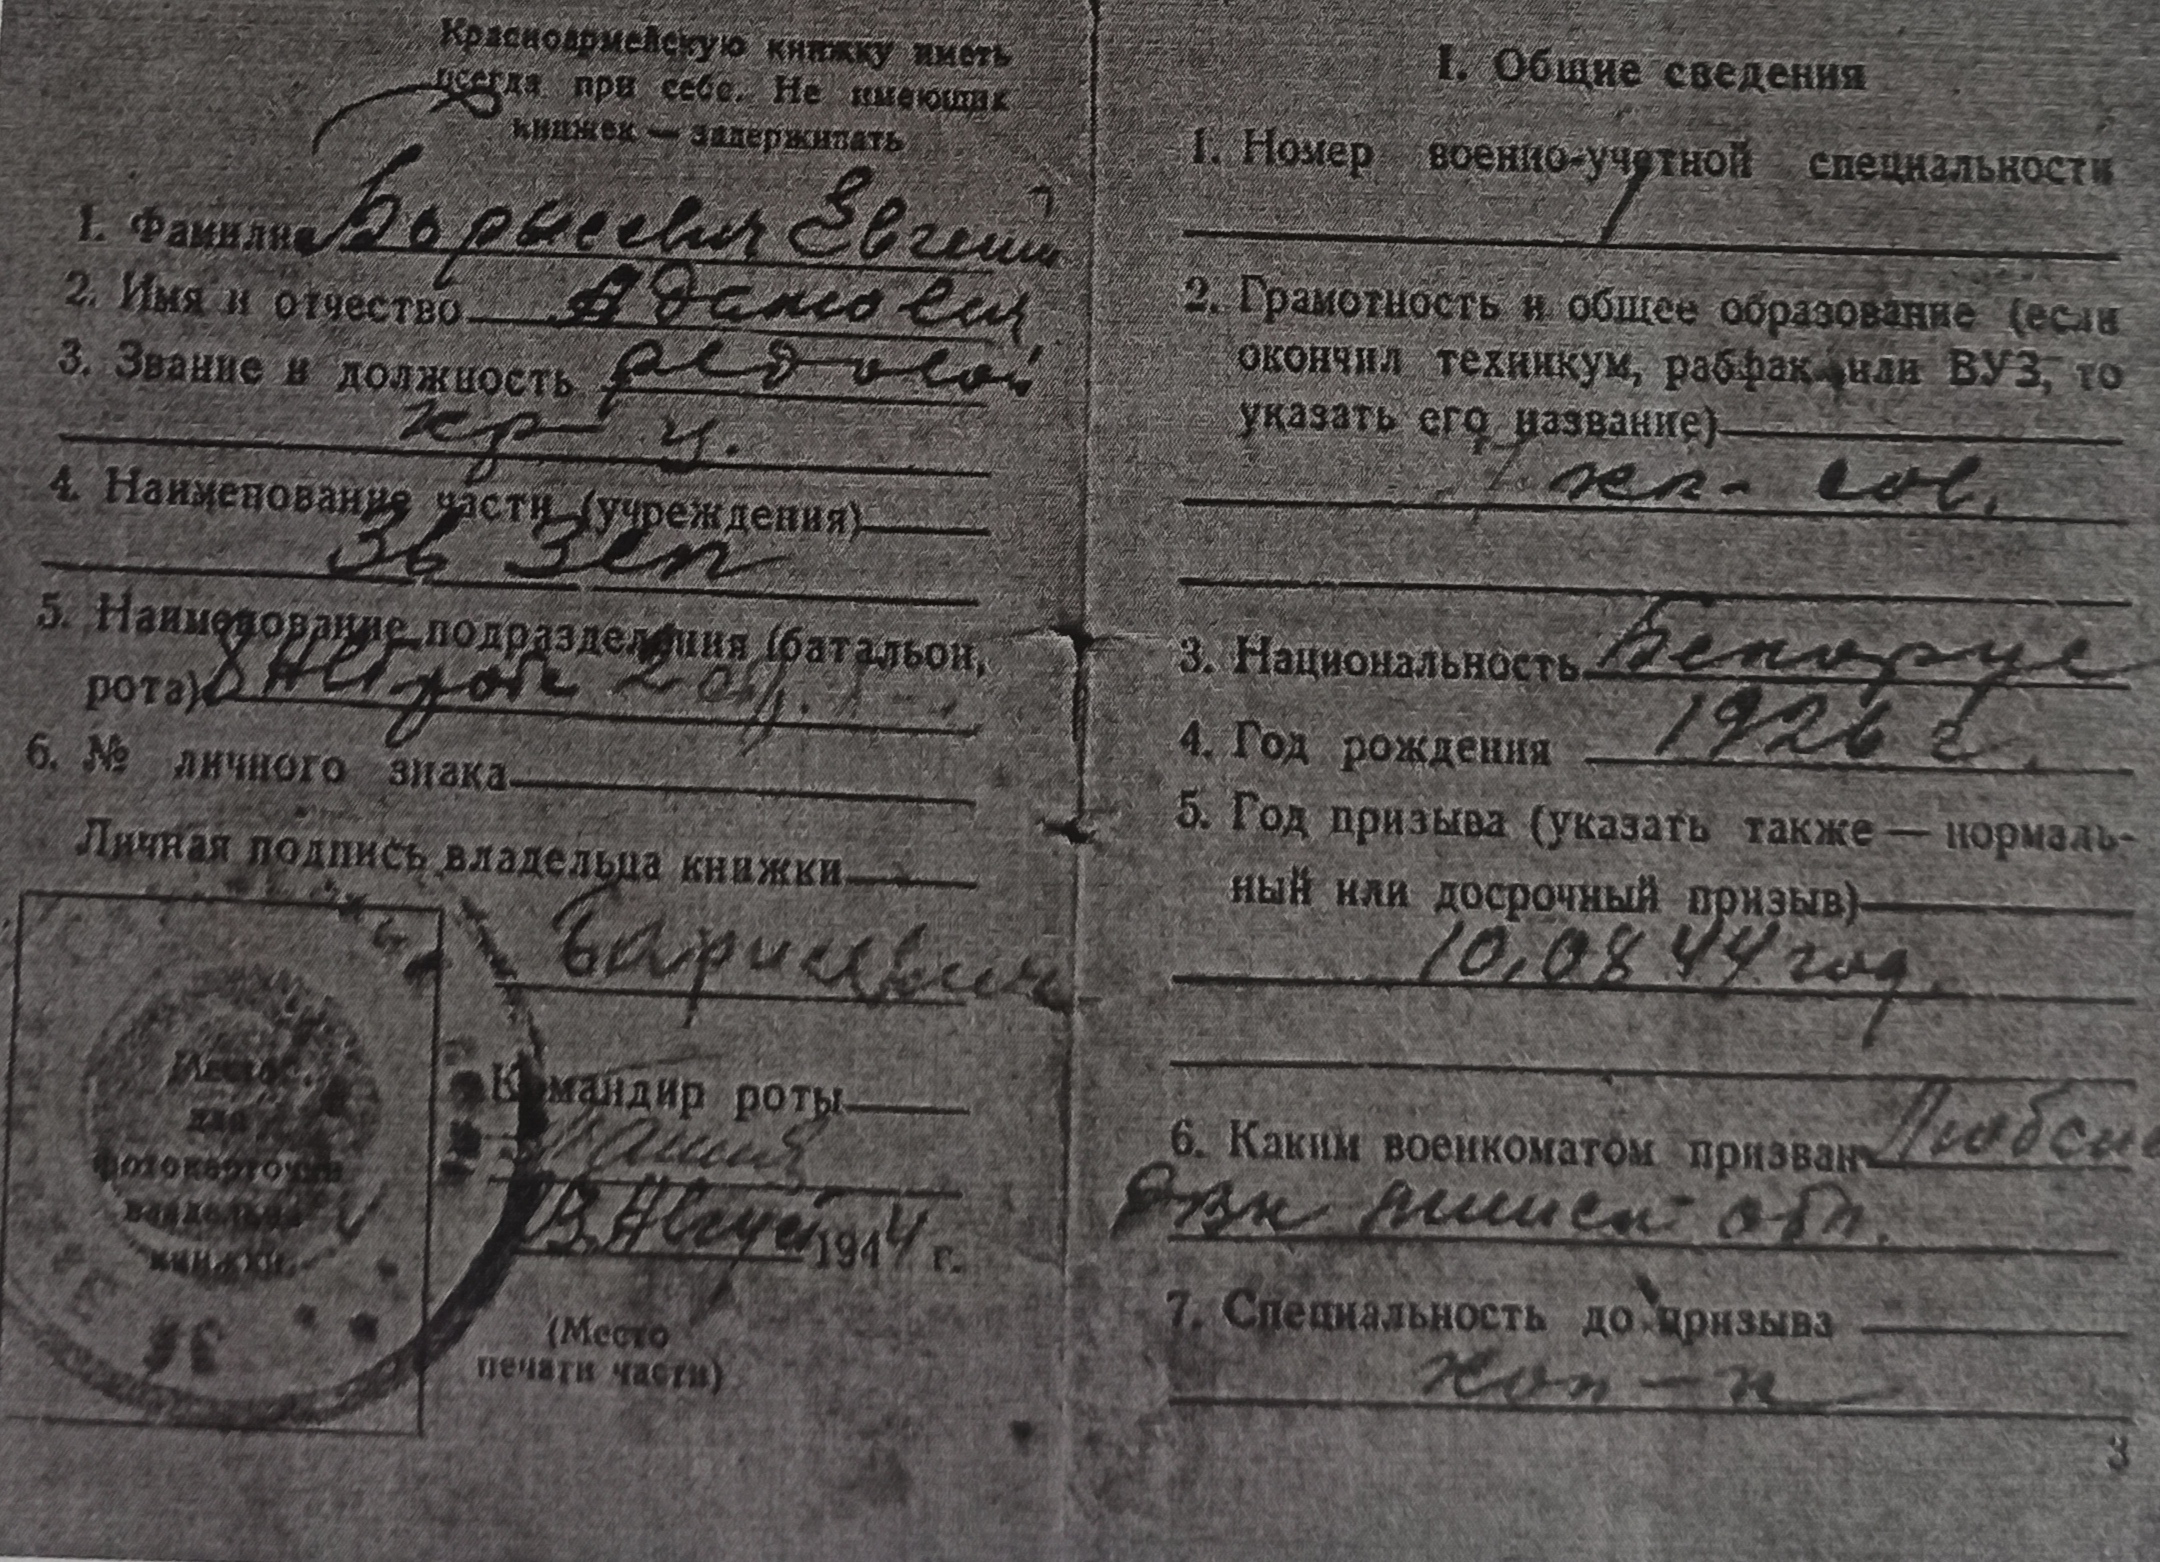 Красноармейскую книжку иметь
всегда при себе. Не имеющих
книжек — задерживать
1. Фамилия Борысевич Евгений
2. Имя и отчество Адамович
3. Звание и должность рядовой
кр-ц.
4. Наименование части (учреждения)
36 Зсп
5. Наименование подразделения (батальон,
рота)
6. № личного знака
Личная подпись владельца книжки
Барисевич
Командир роты
Место
для
фотокарточки
владельца
книжки
13 Август 1944 г.
(Место
печати части)
I. Общие сведения
1. Номер военно-учетной специальности
2. Грамотность и общее образование (если
окончил техникум, рабфак или ВУЗ, то
указать его название)
3. Национальность Белорус
4. Год рождения 1926 г.
5. Год призыва (указать также — нормаль-
ный или досрочный призыв)
10.08 44 год
6. Каким военкоматом призван
РВК Минск обл.
7. Специальность до призыва
кол-к
3